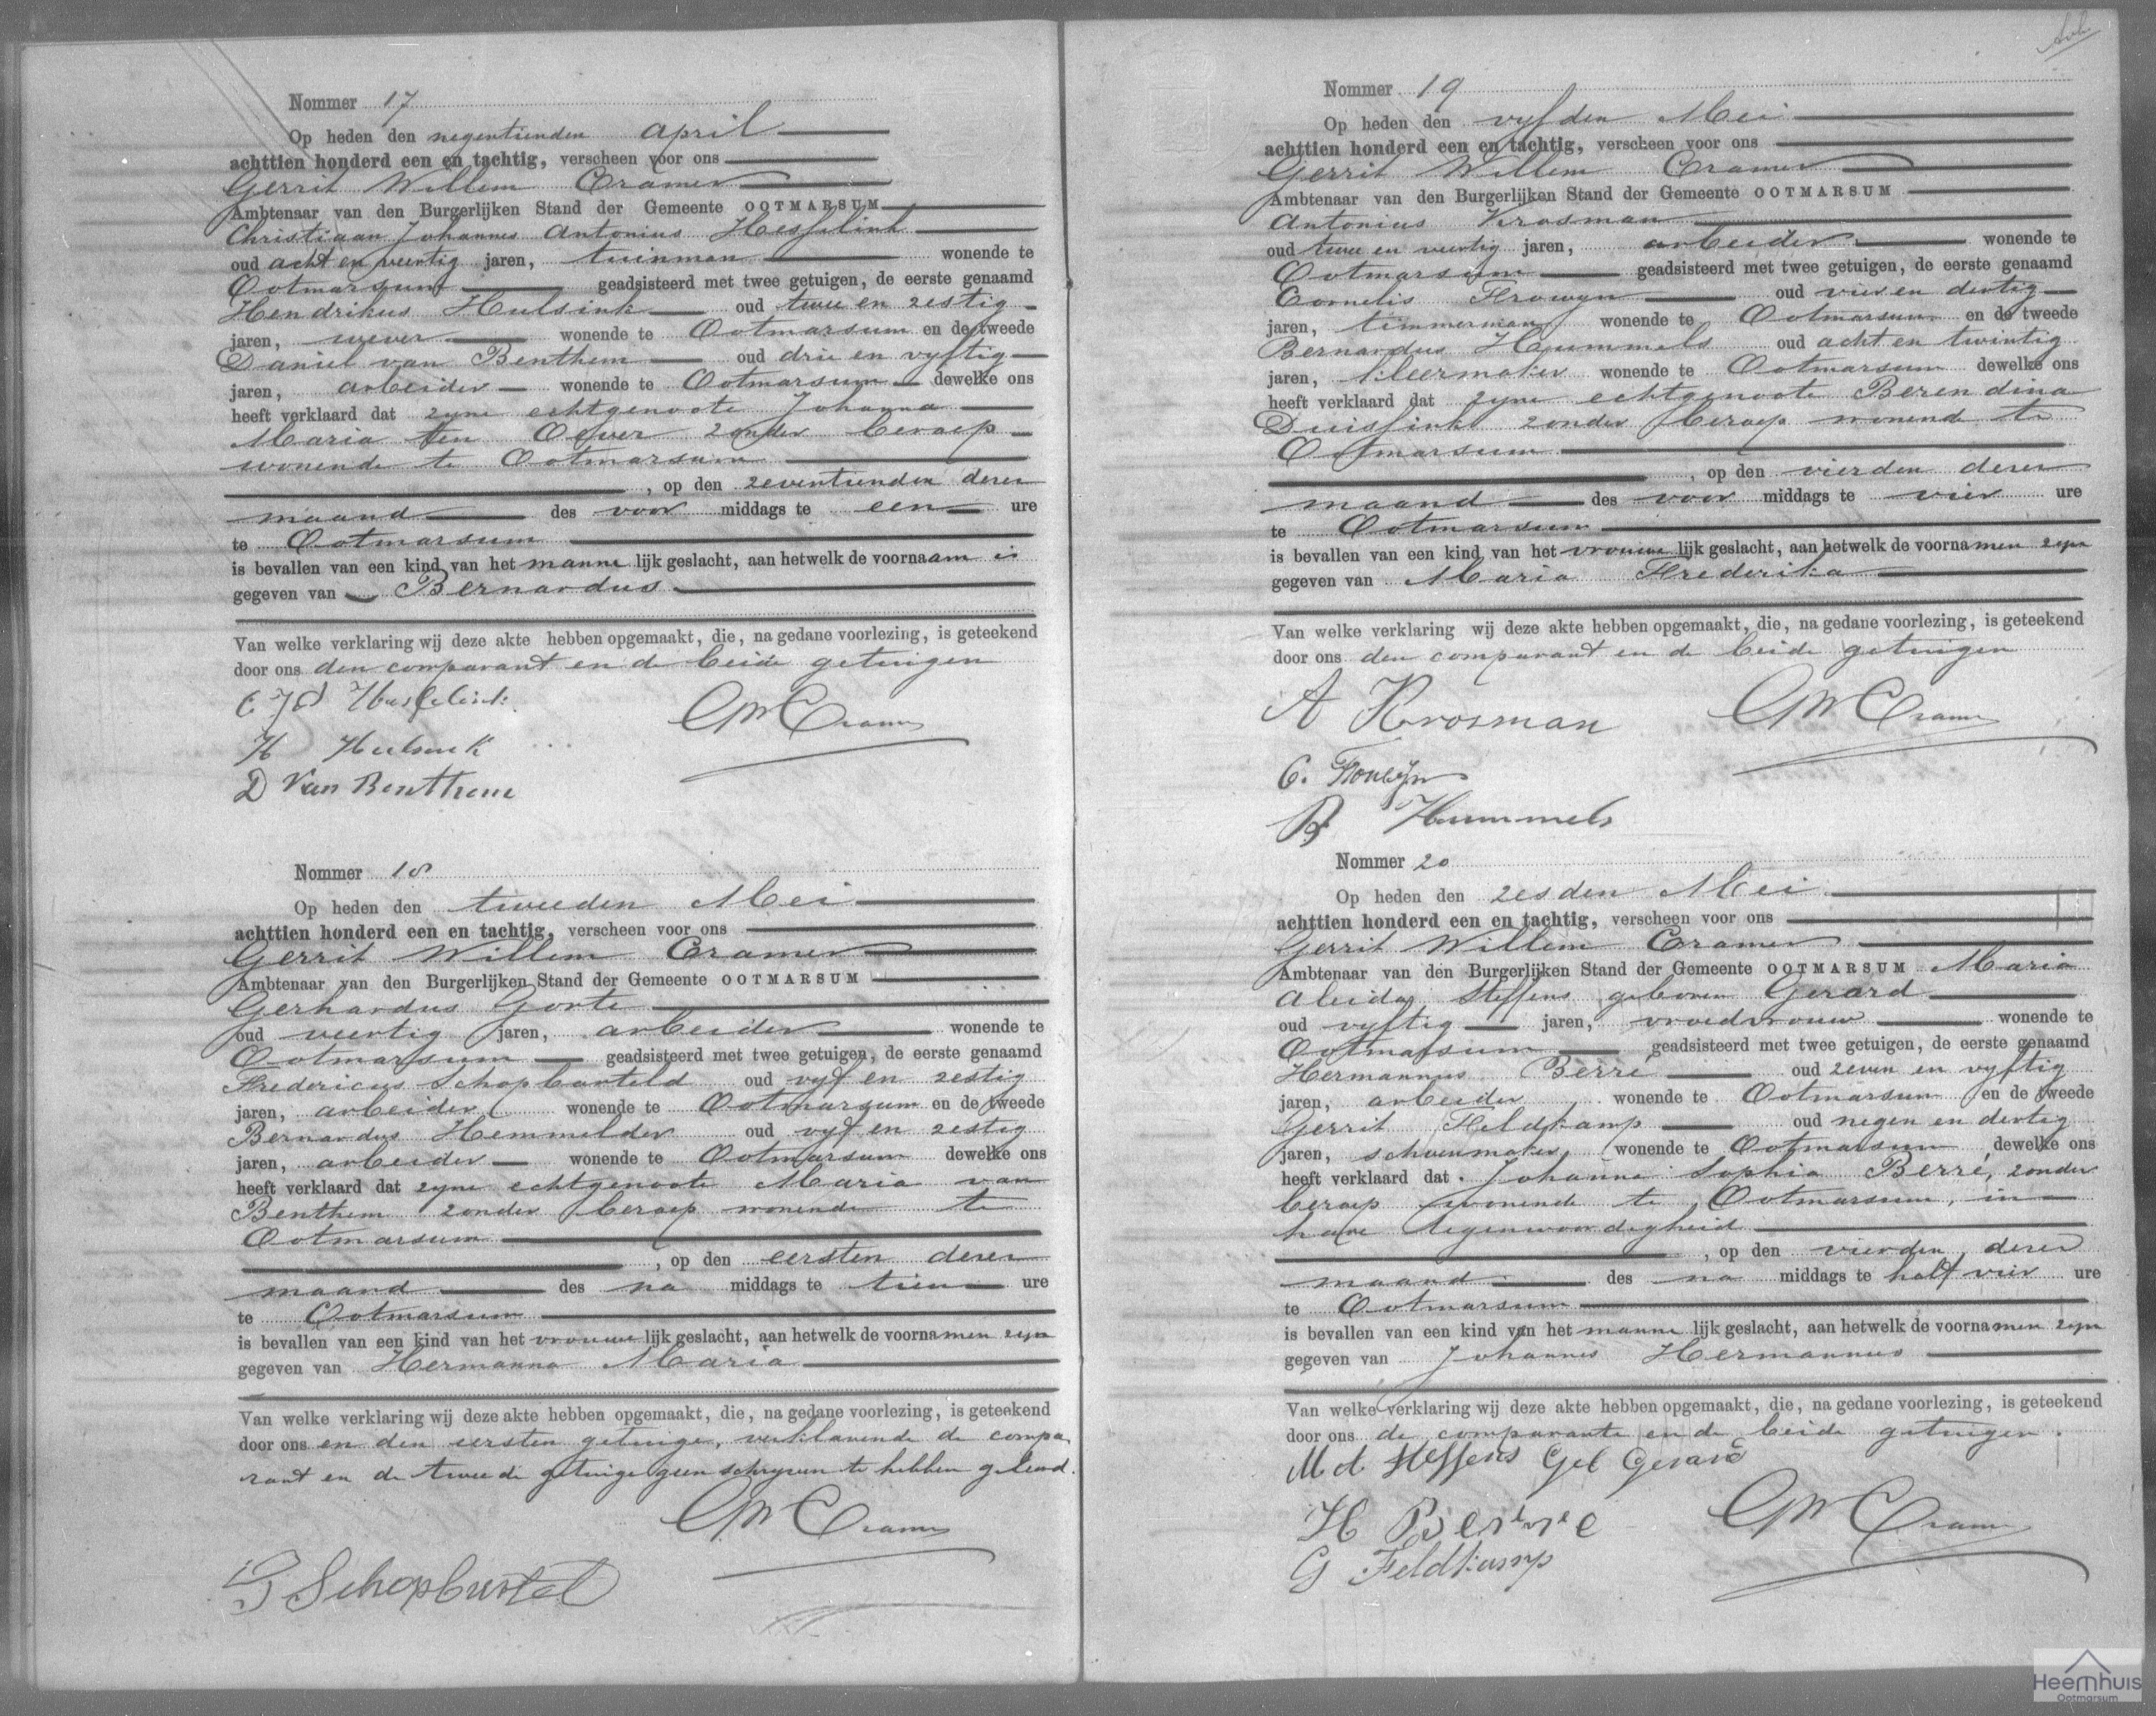 Nommer 17
Op heden den negentienden april
achttien honderd een en tachtig, verscheen voor ons
Gerrit Willem Cramer
Ambtenaar van den Burgerlijken Stand der Gemeente OOTMARSUM
Christiaan Johannes Antonius Hesselink
oud acht en veertig jaren, tuinman wonende te
Ootmarsum geadsisteerd met twee getuigen, de eerste genaamd
Hendrikus Hulsink oud twee en zestig
jaren, wever wonende te Ootmarsum en de tweede
Daniel van Benthem oud drie en vyftig
jaren, arbeider wonende te Ootmarsum dewelke ons
heeft verklaard dat zyne echtgenoote Johanna
Maria ten Oever zonder beroep
wonende te Ootmarsum
, op den zeventienden dezer
maand des voor middags te een ure
te Ootmarsum
is bevallen van een kind van het manne lijk geslacht, aan hetwelk de voornaam is
gegeven van Bernardus
Van welke verklaring wij deze akte hebben opgemaakt, die, na gedane voorlezing, is geteekend
door ons den comparant en d beide getuigen
Hesselink
GWCramer
H Hulsink
D Van Benthem
Nommer 18
Op heden den tweeden Mei
achttien honderd een en tachtig, verscheen voor ons
Gerrit Willem Cramer
Ambtenaar van den Burgerlijken Stand der Gemeente OOTMARSUM
Gerhardus Gorte
oud veertig jaren, arbeider wonende te
Ootmarsum geadsisteerd met twee getuigen, de eerste genaamd
Fredericus Schopbarteld oud vyf en zestig
jaren, arbeider wonende te Ootmarsum en de tweede
Bernardus Hemmelder oud vyf en zestig
jaren, arbeider wonende te Ootmarsum dewelke ons
heeft verklaard dat zyne echtgenoote Maria van
Benthem zonder beroep wonende te
Ootmarsum
, op den eersten dezer
maand des na middags te tien ure
te Ootmarsum
is bevallen van een kind van het vrouwe lijk geslacht, aan hetwelk de voornamen zyn
gegeven van Hermanna Maria
Van welke verklaring wij deze akte hebben opgemaakt, die, na gedane voorlezing, is geteekend
door ons en den eersten getuige, verklarende de compa
rant en de tweede getuige geen schryven te hebben geleerd.
GWCramer
Schopbartel
Nommer 19
Op heden den vyfden Mei
achttien honderd een en tachtig, verscheen voor ons
Gerrit Willem Cramer
Ambtenaar van den Burgerlijken Stand der Gemeente OOTMARSUM
Antonius Krosman
oud twee en veertig jaren, arbeider wonende te
Ootmarsum geadsisteerd met twee getuigen, de eerste genaamd
Cornelis Frowyn oud vier en dertig
jaren, timmerman wonende te Ootmarsum en de tweede
Bernardus Hummels oud acht en twintig
jaren, kleermaker wonende te Ootmarsum dewelke ons
heeft verklaard dat zyne echtgenoote Berendina
Duissink zonder beroep wonende te
Ootmarsum
, op den vierden dezer
maand des voor middags te vier ure
te Ootmarsum
is bevallen van een kind van het vrouwe lijk geslacht, aan hetwelk de voornamen zyn
gegeven van Maria Frederika
Van welke verklaring wij deze akte hebben opgemaakt, die, na gedane voorlezing, is geteekend
door ons den comparant en de beide getuigen
A Krosman
GWCramer
C. Frowyn
B Hummels
Nommer 20
Op heden den zesden Mei
achttien honderd een en tachtig, verscheen voor ons
Gerrit Willem Cramer
Ambtenaar van den Burgerlijken Stand der Gemeente OOTMARSUM Maria
Aleida Steffens geboren Gerard
oud vyftig jaren, vroedvrouw wonende te
Ootmarsum geadsisteerd met twee getuigen, de eerste genaamd
Hermannus Berré oud zeven en vyftig
jaren, arbeider wonende te Ootmarsum en de tweede
Gerrit Feldkamp oud negen en dertig
jaren, schoenmaker wonende te Ootmarsum dewelke ons
heeft verklaard dat Johanna Sophia Berré, zonder
beroep wonende te Ootmarsum, in
hare tegenwoordigheid
, op den vierden dezer
maand des na middags te half vier ure
te Ootmarsum
is bevallen van een kind van het manne lijk geslacht, aan hetwelk de voornamen zyn
gegeven van Johannes Hermannus
Van welke verklaring wij deze akte hebben opgemaakt, die, na gedane voorlezing, is geteekend
door ons de comparante en de beide getuigen.
M A Steffens Geb Gerard
H Berre
GWCramer
G Feldkamp
Heemhuis
Ootmarsum